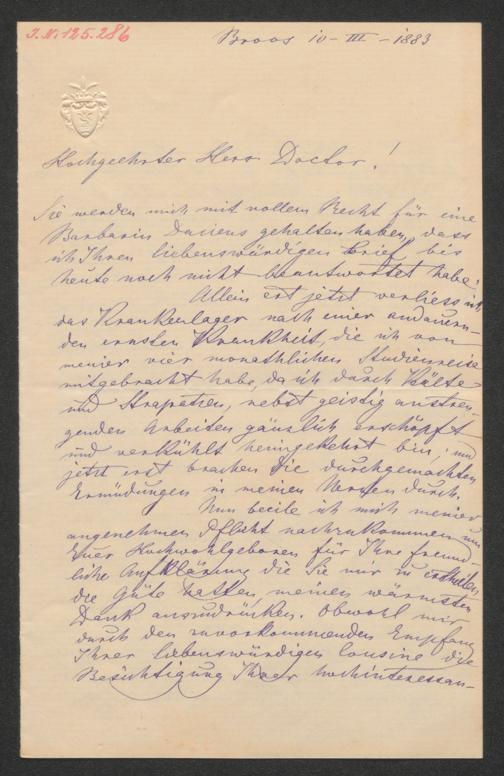 J.N. 125.286
Broos 10 - III - 1883
Hochgeehrter Herr Doctor!
Sie werden mich mit vollem Recht für eine
Barbarin Daciens gehalten haben, dass
ich Ihren liebenswürdigen Brief bis
heute noch nicht beantwortet habe!
Allein erst jetzt verliess ich
das Krankenlager nach einer andauern-
den ernsten Krankheit, die ich von
meiner vier monathlichen Studienreise
mitgebracht habe, da ich durch Kälte
und Strapatzen, nebst geistig anstren-
genden Arbeiten gänzlich erschöpft
und verkühlt heimgekehrt bin; und
jetzt erst brachen die durchgemachten
Ermüdungen in meinen Nerven durch.
Nun beeile ich mich meiner
angenehmen Pflicht nachzukommen um
Euer Hochwohlgeboren für Ihre freund-
liche Aufklärung die Sie mir zu ertheilen
die Güte hatten meinen wärmsten
Dank auszudrücken. Obwohl mir
durch den zuvorkommenden Empfang
Ihrer liebenswürdigen Cousine die
Besichtigung Ihrer hochinteressan-